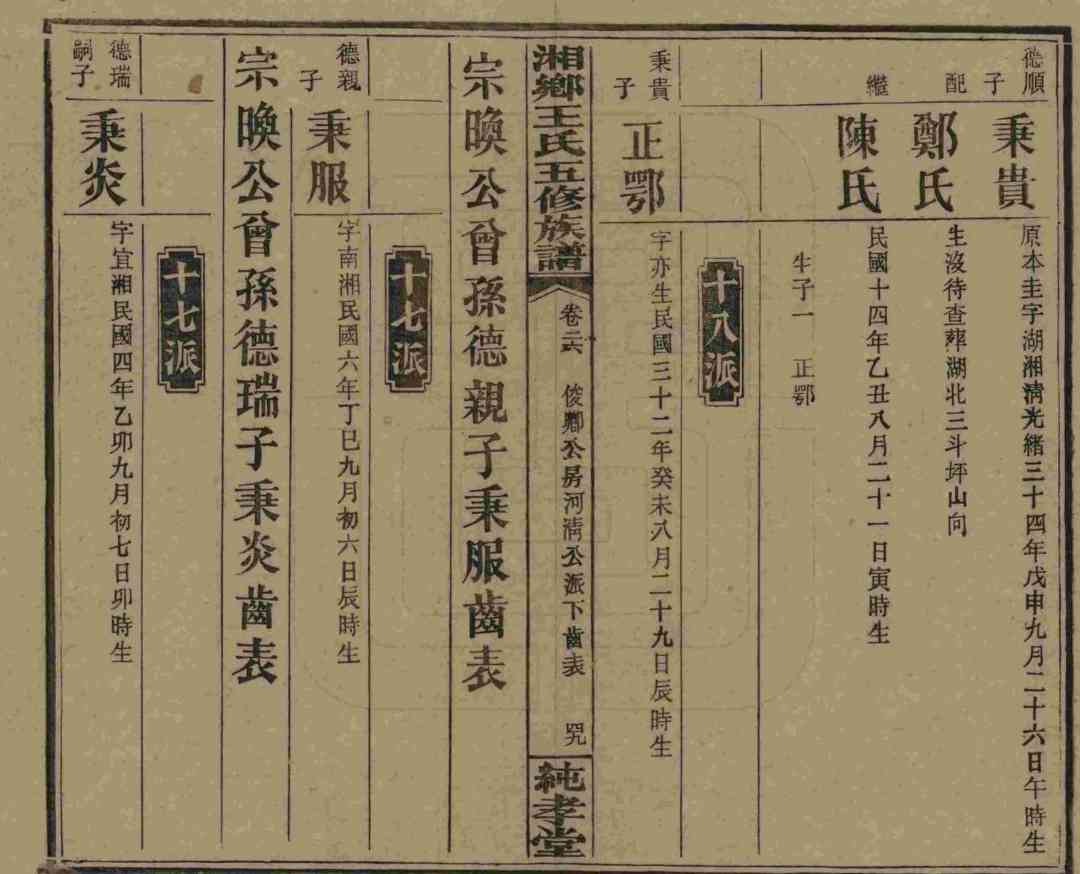 德順
子
秉貴
原本圭字湖湘清光緒三十四年戊申九月二十六日午時生
配
鄭氏
生沒待查葬湖北三斗坪山向
繼
陳氏
民國十四年乙丑八月二十一日寅時生
生子一 正鄂
十八派
秉貴
子
正鄂
字亦生民國三十二年癸未八月二十九日辰時生
湘鄉王氏五修族譜
卷二六 俊卿公房河清公派下齒表
純孝堂
宗喚公曾孫德親子秉服齒表
十七派
德親
子
秉服
字南湘民國六年丁巳九月初六日辰時生
宗喚公曾孫德瑞子秉炎齒表
十七派
德瑞
嗣子
秉炎
字宜湘民國四年乙卯九月初七日卯時生